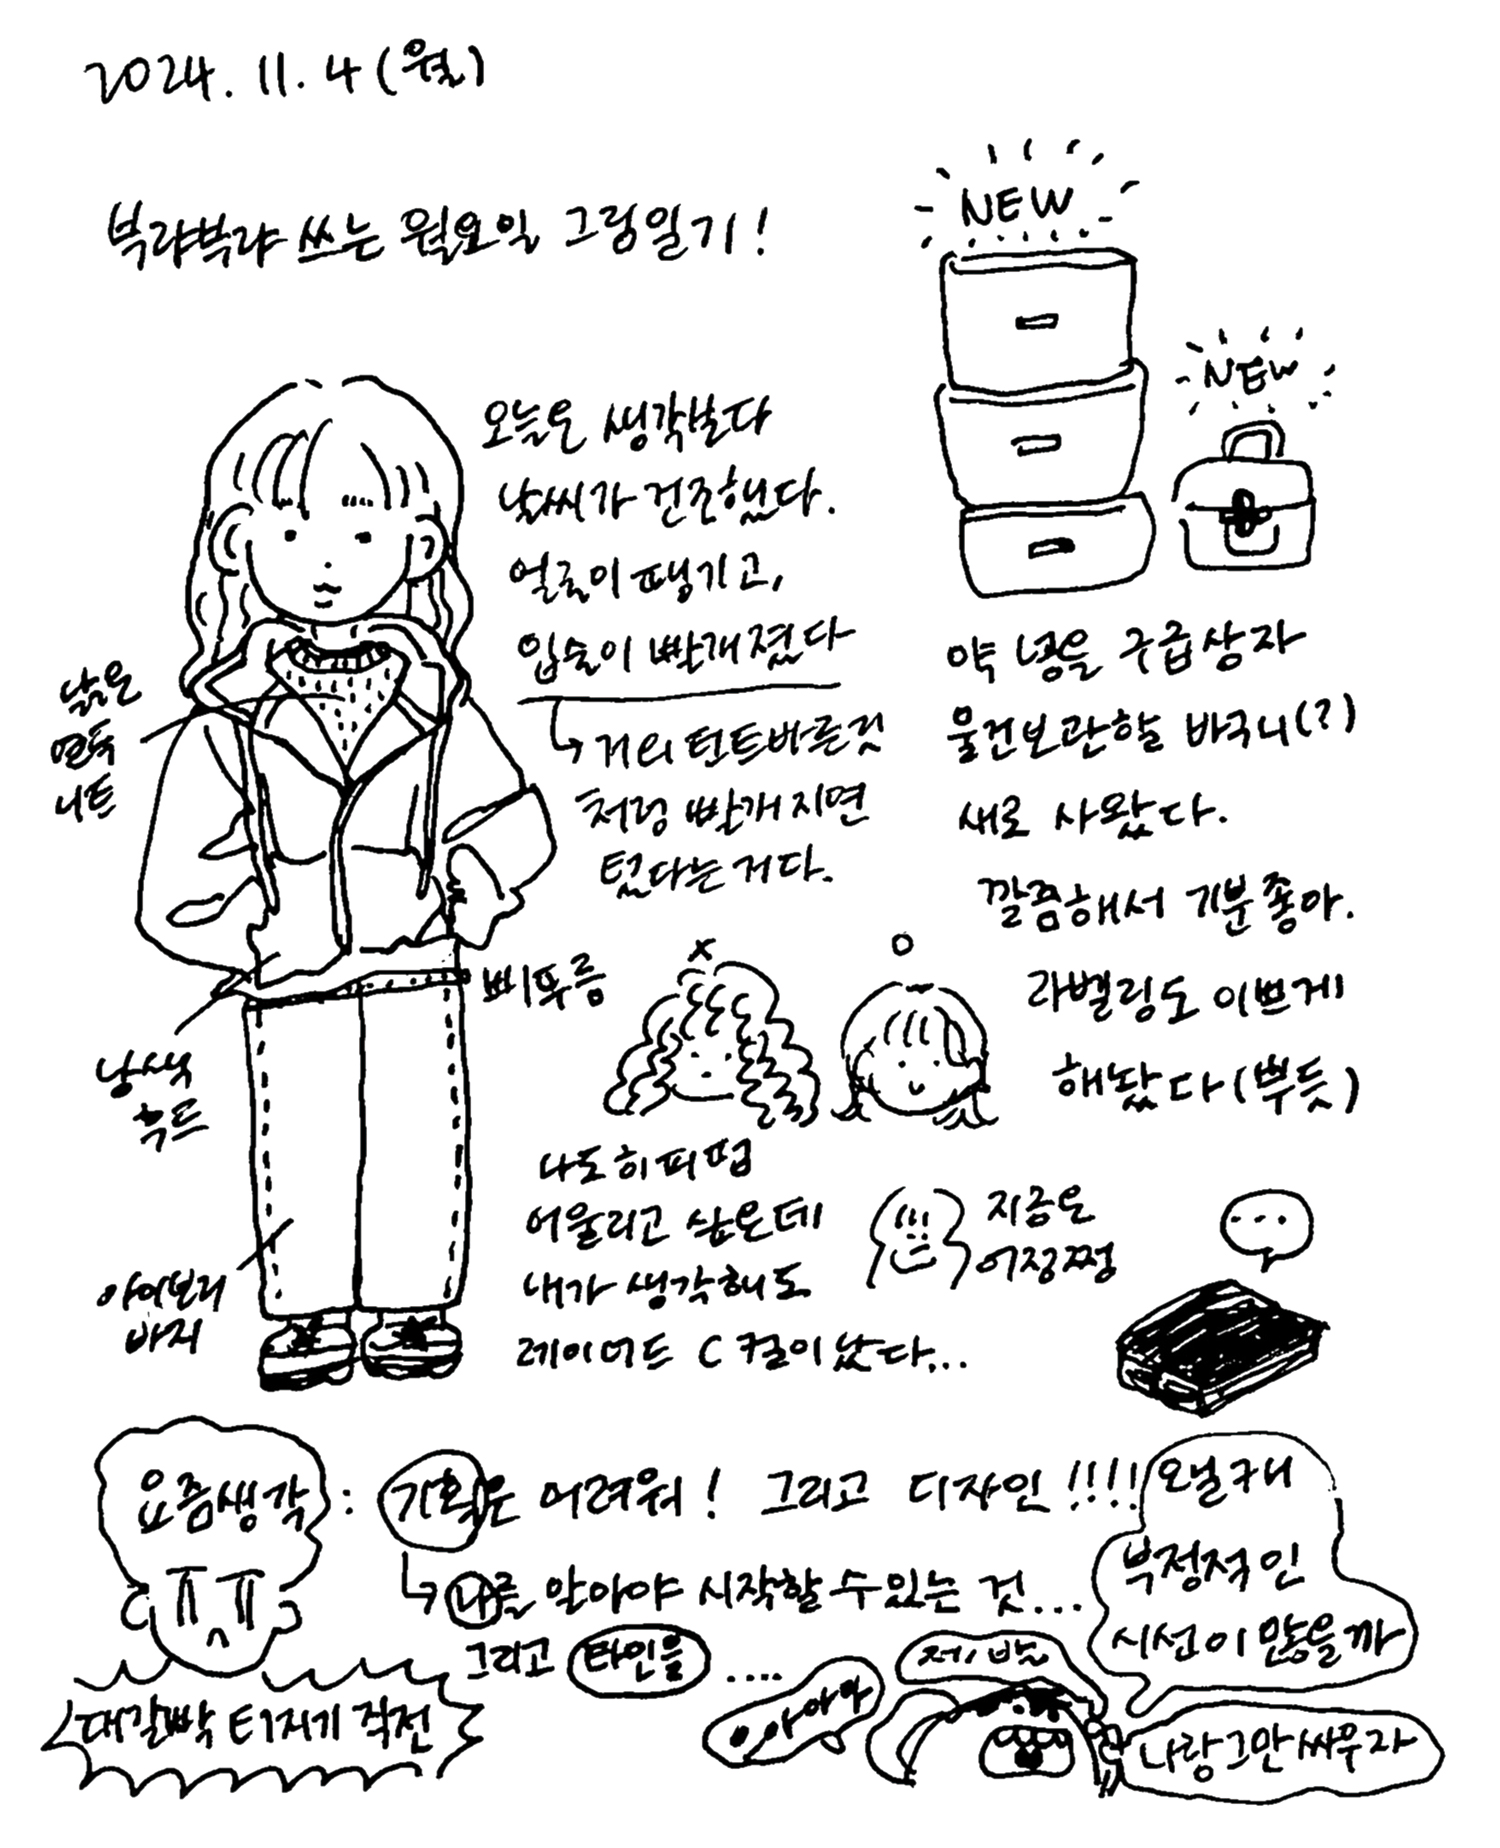 2024. 11. 4 (월)
부랴부랴 쓰는 월요일 그림일기!
NEW
NEW
오늘은 생각보다
날씨가 건조했다.
얼굴이 땡기고,
입술이 빨개졌다
거의 틴트바른것
처럼 빨개지면
텄다는거다.
낡은
연두
니트
남색
후드
아이보리
바지
약 넣을 구급상자
물건보관할 바구니(?)
새로 사왔다.
깔끔해서 기분좋아.
라벨링도 이쁘게
해놨다(뿌듯)
삐뚜름
x
o
나도 히피펌
어울리고 싶은데
내가 생각해도
레이어드 C컬이 낫다...
지금은
어정쩡
...
요즘생각 : 기획은 어려워! 그리고 디자인!!!!
나를 알아야 시작할 수 있는 것...
그리고 타인을 ....
대갈빡 터지기 직전
왤캐
부정적인
시선이 많을까
제발
으아아아
나랑그만싸우자